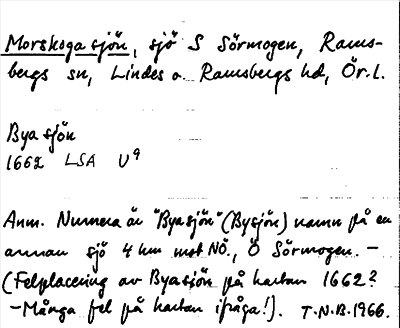 Morskogasjön, sjö S Sörmogen, Rams-
bergs sn, Lindes o. Ramsbergs hd, Ör. l.
Byasjön
1662 LSA U⁹
Anm. Numera är "Byasjön" (Bysjön) namn på en
annan sjö 4 km mot NÖ., Ö Sörmogen. –
(Felplacering av Byasjön på kartan 1662?
– Många fel på kartan ifråga!). T.N.B. 1966.